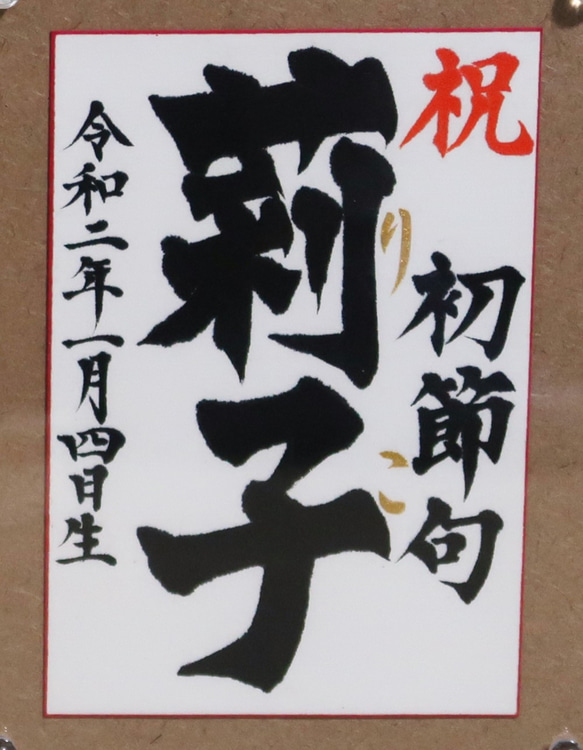 祝
初節句
りこ
莉子
令和二年一月四日生